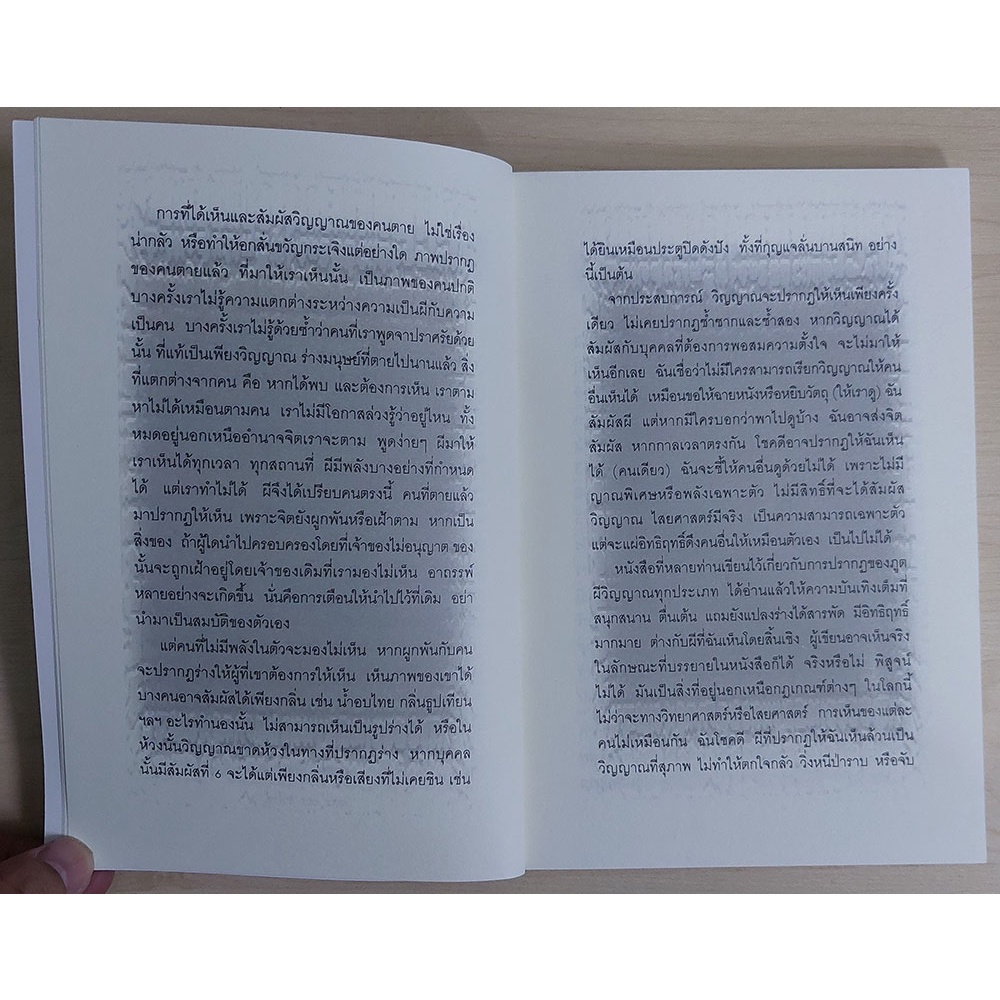 การที่ได้เห็นและสัมผัสวิญญาณของคนตาย ไม่ใช่เรื่อง
น่ากลัว หรือทำให้อกสั่นขวัญกระเจิงแต่อย่างใด ภาพปรากฏ
ของคนตายแล้ว ที่มาให้เราเห็นนั้น เป็นภาพของคนปกติ
บางครั้งเราไม่รู้ความแตกต่างระหว่างความเป็นผีกับความ
เป็นคน บางครั้งเราไม่รู้ด้วยซ้ำว่าคนที่เราพูดจาปราศรัยด้วย
นั้น ที่แท้เป็นเพียงวิญญาณ ร่างมนุษย์ที่ตายไปนานแล้ว สิ่ง
ที่แตกต่างจากคน คือ หากได้พบ และต้องการเห็น เราตาม
หาไม่ได้เหมือนตามคน เราไม่มีโอกาสล่วงรู้ว่าอยู่ไหน ทั้ง
หมดอยู่นอกเหนืออำนาจจิตเราจะตาม พูดง่ายๆ ผีมาให้
เราเห็นได้ทุกเวลา ทุกสถานที่ ผีมีพลังบางอย่างที่กำหนด
ได้ แต่เราทำไม่ได้ ผีจึงได้เปรียบคนตรงนี้ คนที่ตายแล้ว
มาปรากฏให้เห็น เพราะจิตยังผูกพันหรือเฝ้าตาม หากเป็น
สิ่งของ ถ้าผู้ใดนำไปครอบครองโดยที่เจ้าของไม่อนุญาต ของ
นั้นจะถูกเฝ้าอยู่โดยเจ้าของเดิมที่เรามองไม่เห็น อาถรรพ์
หลายอย่างจะเกิดขึ้น นั่นคือการเตือนให้นำไปไว้ที่เดิม อย่า
นำมาเป็นสมบัติของตัวเอง
แต่คนที่ไม่มีพลังในตัวจะมองไม่เห็น หากผูกพันกับคน
จะปรากฏร่างให้ผู้ที่เขาต้องการให้เห็น เห็นภาพของเขาได้
บางคนอาจสัมผัสได้เพียงกลิ่น เช่น น้ำอบไทย กลิ่นธูปเทียน
ฯลฯ อะไรทำนองนั้น ไม่สามารถเห็นเป็นรูปร่างได้ หรือใน
ห้วงนั้นวิญญาณขาดห้วงในทางที่ปรากฏร่าง หากบุคคล
นั้นมีสัมผัสที่ 6 จะได้แต่เพียงกลิ่นหรือเสียงที่ไม่เคยชิน เช่น
ได้ยินเหมือนประตูปิดดังปัง ทั้งที่กุญแจลั่นบานสนิท อย่าง
นี้เป็นต้น
จากประสบการณ์ วิญญาณจะปรากฏให้เห็นเพียงครั้ง
เดียว ไม่เคยปรากฏซ้ำซากและซ้ำสอง หากวิญญาณได้
สัมผัสกับบุคคลที่ต้องการพอสมความตั้งใจ จะไม่มาให้
เห็นอีกเลย ฉันเชื่อว่าไม่มีใครสามารถเรียกวิญญาณให้คน
อื่นเห็นได้ เหมือนขอให้ฉายหนังหรือหยิบวัตถุ (ให้เราดู) ฉัน
สัมผัสผี แต่หากมีใครบอกว่าพาไปดูบ้าง ฉันอาจส่งจิต
สัมผัส หากกาลเวลาตรงกัน โชคดีอาจปรากฏให้ฉันเห็น
ได้ (คนเดียว) ฉันจะชี้ให้คนอื่นดูด้วยไม่ได้ เพราะไม่มี
ญาณพิเศษหรือพลังเฉพาะตัว ไม่มีสิทธิ์ที่จะได้สัมผัส
วิญญาณ ไสยศาสตร์มีจริง เป็นความสามารถเฉพาะตัว
แต่จะแผ่อิทธิฤทธิ์ถึงคนอื่นให้เหมือนตัวเอง เป็นไปไม่ได้
หนังสือที่หลายท่านเขียนไว้เกี่ยวกับการปรากฏของภูต
ผีวิญญาณทุกประเภท ได้อ่านแล้วให้ความบันเทิงเต็มที่
สนุกสนาน ตื่นเต้น แถมยังแปลงร่างได้สารพัด มีอิทธิฤทธิ์
มากมาย ต่างกับผีที่ฉันเห็นโดยสิ้นเชิง ผู้เขียนอาจเห็นจริง
ในลักษณะที่บรรยายในหนังสือก็ได้ จริงหรือไม่ พิสูจน์
ไม่ได้ มันเป็นสิ่งที่อยู่นอกเหนือกฎเกณฑ์ต่างๆ ในโลกนี้
ไม่ว่าจะทางวิทยาศาสตร์หรือไสยศาสตร์ การเห็นของแต่ละ
คนไม่เหมือนกัน ฉันโชคดี ผีที่ปรากฏให้ฉันเห็นล้วนเป็น
วิญญาณที่สุภาพ ไม่ทำให้ตกใจกลัว วิ่งหนีป่าราบ หรือจับ